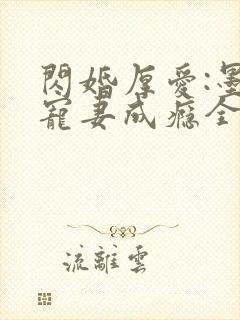 閃婚厚愛:墨
寵妻成癮全
流離雲